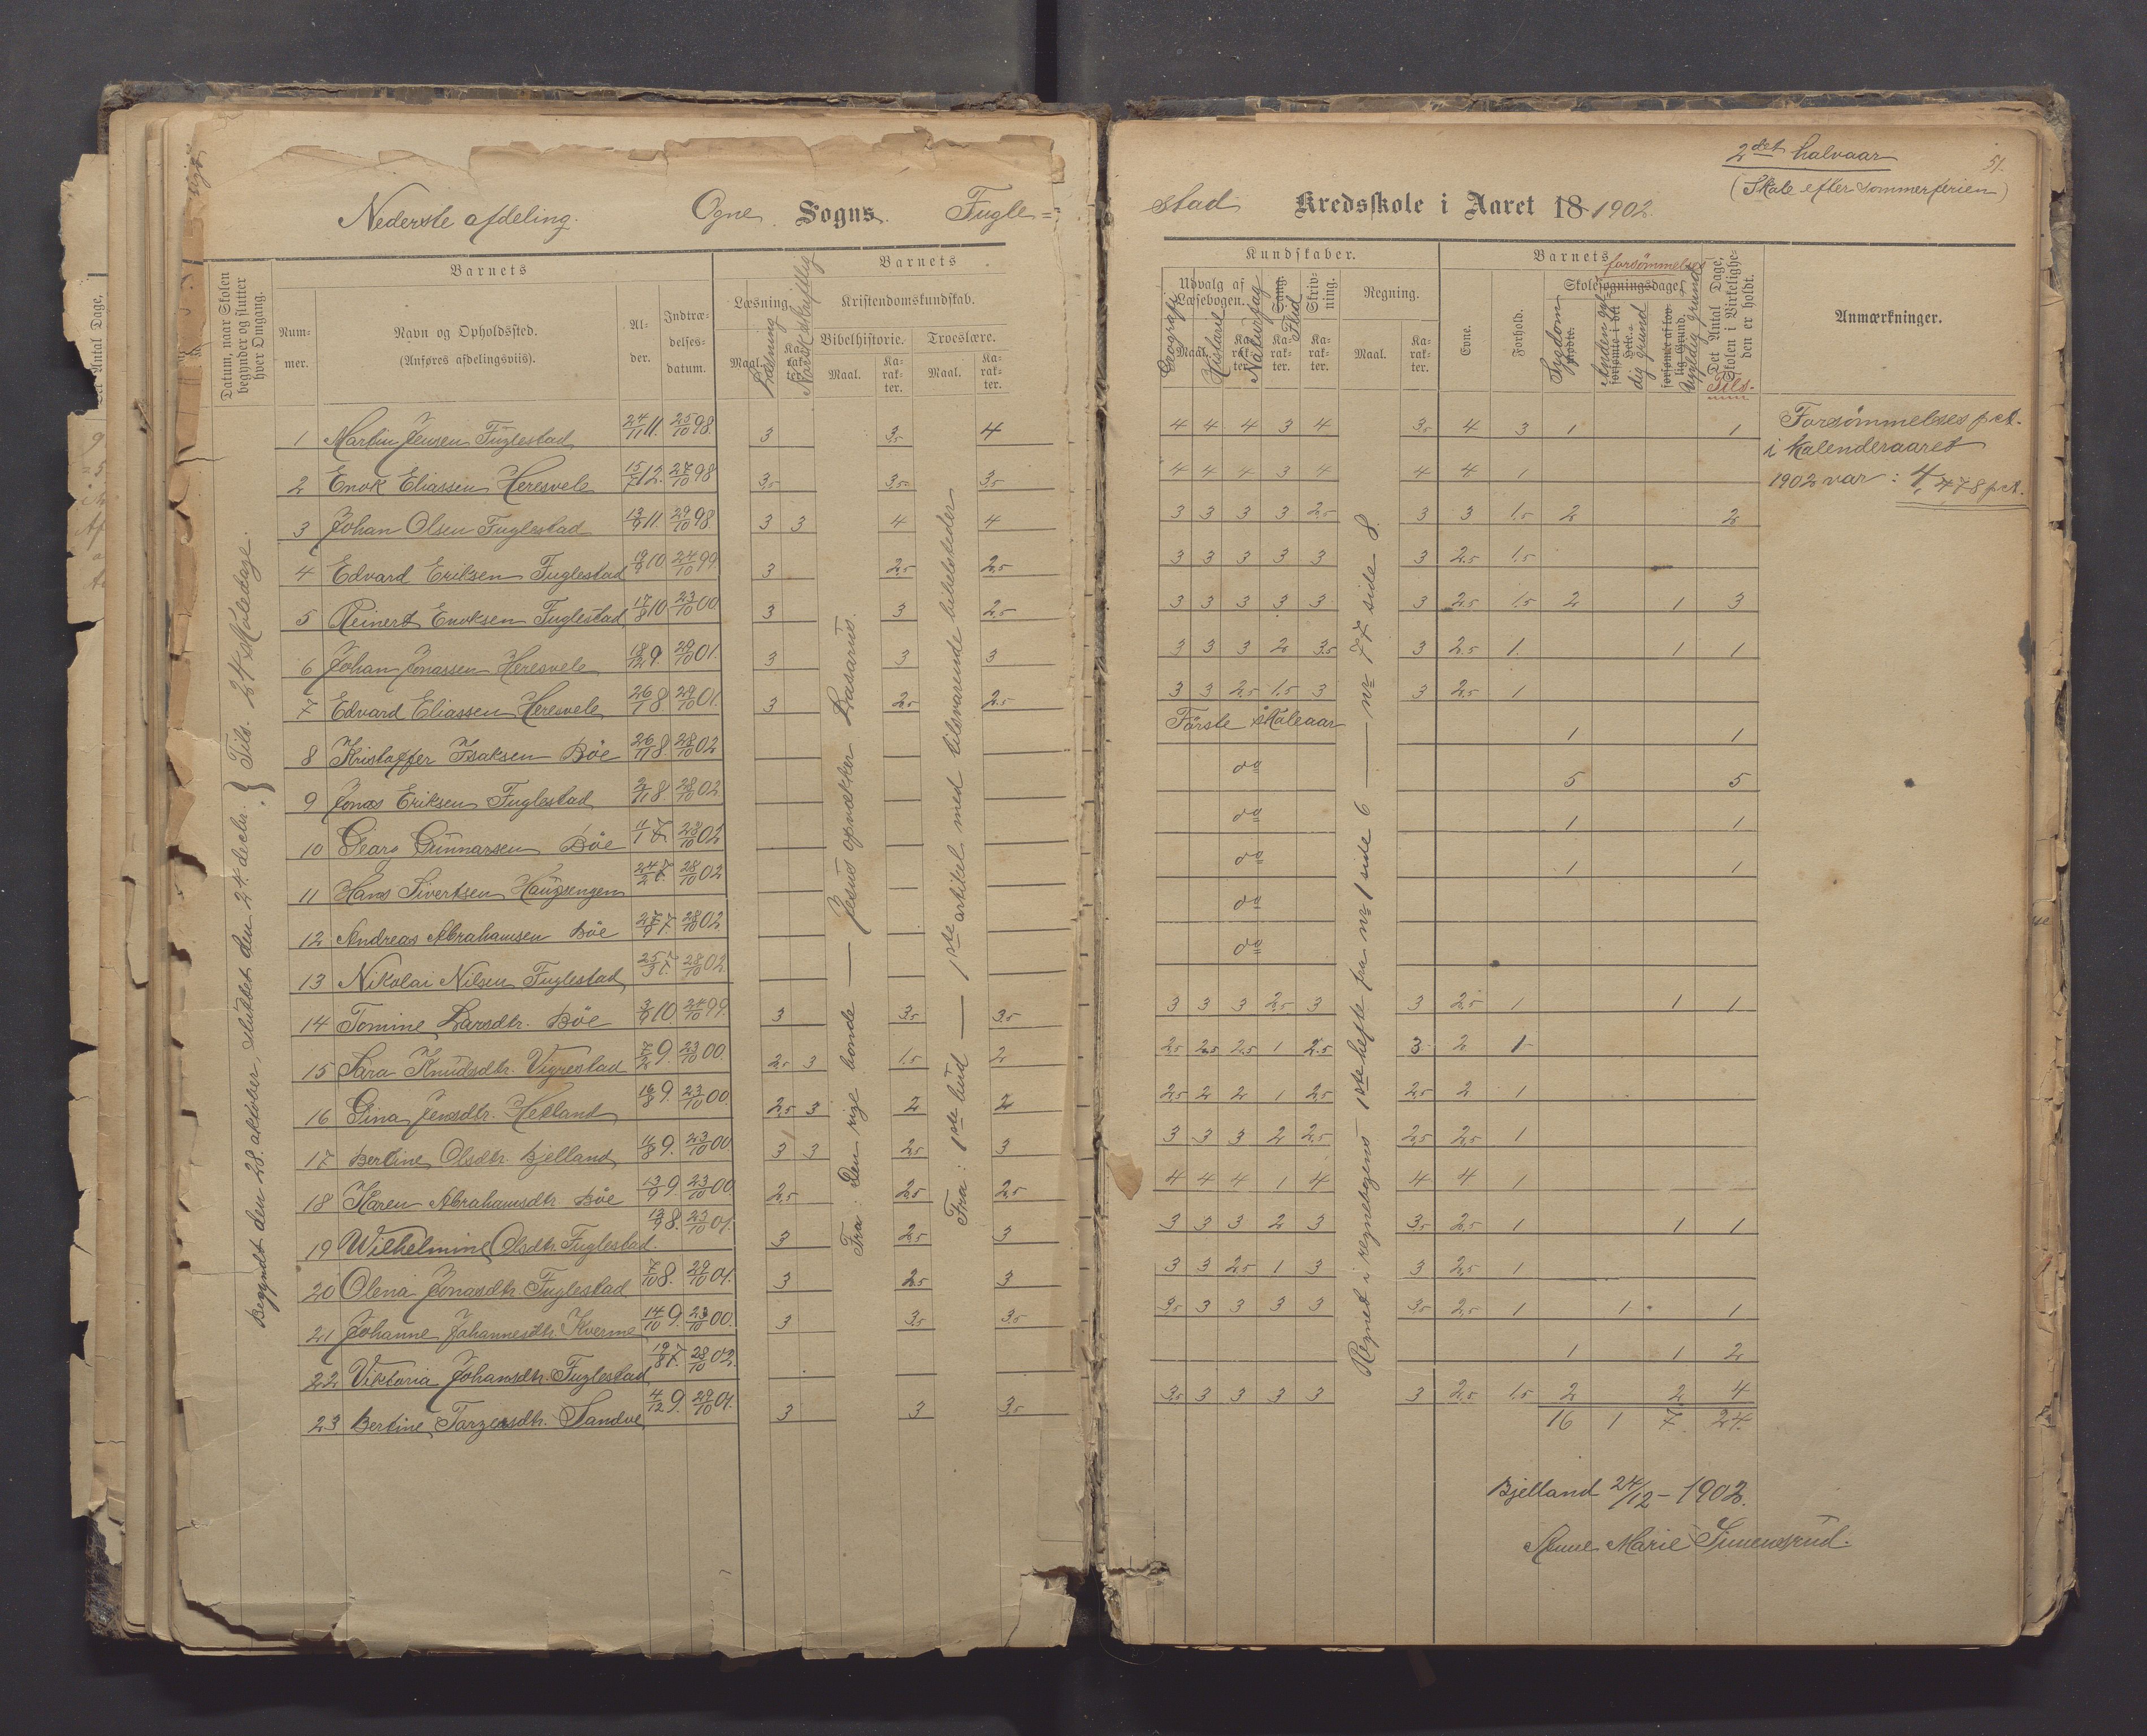 Nederste afdeling. Ogne Sogns Fugle=
Datum, naar Skolen begynder og slutter hver Omgang.
Barnets
Barnets
Num-mer.
Navn og Opholdssted.
(Anføres afdelingsviis).
Al-der.
Indtræ-delses-datum.
Læsning.
Maal.
Ka-rak-ter.
Læsning
Norsk skriftlig
Kristendomskundskab.
Bibelhistorie.
Troeslære.
Maal.
Ka-rak-ter.
Maal.
Ka-rak-ter.
Begyndt den 28. oktober, sluttet den 24. decbr. } Tils. 24 skoledage.
1 Martin Jensen Fuglestad 24/11 11. 25/10 98. 3 3,5 4
2 Enok Eliassen Heresvele 15/7 12. 27/10 98 3,5 3,5 3,5
3 Johan Olsen Fuglestad 13/9 11. 29/10 98. 3 3 4 4
4 Edvard Eriksen Fuglestad 19/9 10 24/10 99 3 2,5 2,5
5 Reinert Enoksen Fuglestad 17/8 10 23/10 00 3 3 2,5
6 Johan Jonassen Heresvele 18/12 9. 29/10 01. 3 3 3
7 Edvard Eliassen Heresvele 26/1 8 29/10 01. 3 2,5 2,5
8 Kristoffer Isaksen Böe 26/11 8 28/10 02
9 Jonas Eriksen Fuglestad 2/11 8. 28/10 02
10 Georg Gunnarsen Böe 11/1 7. 28/10 02
11 Hans Sivertsen Haugsengen 24/2 7. 28/10 02
12 Andreas Abrahamsen Böe 27/9 7 28/10 02
13 Nikolai Nilsen Fuglestad 25/3 7. 28/10 02.
14 Tomine Larsdtr. Böe 3/9 10. 24/10 99. 3 3,5 3,5
15 Sara Knudsdtr. Vigrestad 7/2 9. 23/10 00. 2,5 3 1,5 2
16 Gina Jensdtr. Hetland 16/8 9. 23/10 00. 2,5 3 2 2
17 Bertine Olsdtr. Bjelland 11/8 9. 23/10 00. 3 3 2,5 3
18 Karen Abrahamsdtr. Böe 13/9 9 23/10 00. 2,5 2,5 2,5
19 Wilhelmine Olsdtr. Fuglestad. 13/9 8. 23/10 01. 3 2,5 3
20 Olena Jonasdtr. Fuglestad 7/10 8. 29/10 01. 3 2,5 3
21 Johanne Johannesdtr. Kverme 14/10 9. 23/10 00. 3 3,5 3,5
22 Viktoria Johansdtr. Fuglestad 19/8 7. 28/10 02.
23 Bertine Torgersdtr. Sandve 4/12 9. 29/10 01. 3 3 3,5
Fra: Den rige bonde — Jesus opvækker Lasarus.
Fra: 1ste bud — 1ste artikel med tilsvarende bibelsteder
2det halvaar
51.
(Skole efter sommerferien)
stad Kredsskole i Aaret 18 1902.
Kundskaber.
Udvalg af Læsebogen.
Maal.
Ka-rak-ter.
Geografi
Historie
Naturfag
Sang.
Flid
Ka-rak-ter.
Skriv-ning.
Ka-rak-ter.
Regning.
Maal.
Ka-rak-ter.
Barnets
Evne.
Forhold.
forsømmelser
Skolesøgningsdage
Sygdom
mødte.
Anden gyl-dig grund
forsømte i det Hele.
forsømt af lov-lig Grund.
Ugyldig grund
Det Antal Dage, Skolen i Virkelighe-den er holdt.
Tils.
Anmærkninger.
4 4 4 3 4 3,5 4 3 1 1
4 4 4 3 4 4 4 1
3 3 3 3 2,5 3 3 1,5 2 2
3 3 3 3 3 3 2,5 1,5
3 3 3 3 3 3 2,5 1,5 2 1 3
3 3 3 2 3,5 3 2,5 1. 1 1
3 3 2,5 1,5 3 3 2,5 1
Förste skoleaar 1 1
do 5 5
do 1 1
do 1 1
do
do
3 3 3 2,5 3 3 2,5 1 1 1
2,5 2,5 2,5 1 2,5 3 2 1
2,5 2 2 1 2,5 2,5 2 1
3 3 3 2 2,5 2,5 2,5 1
4 4 4 1 4 4 4 1
3 3 3 2 3 3,5 2,5 1 1 1
3 3 2,5 1 3 3 2,5 1
3,5 3 3 3 3 3,5 2,5 1 1 1
1 1 2
3,5 3 3 3 3 3 2,5 1,5 2 2 4
16 1 7 24.
Regnet i regnebogens 1ste hefte fra nr 1 side 6 — nr 77 side 8.
Forsømmelses pct.
i kalenderaaret
1902 var: 4,478 pct.
Bjelland 24/12 – 1902.
Anne Marie Simensrud.